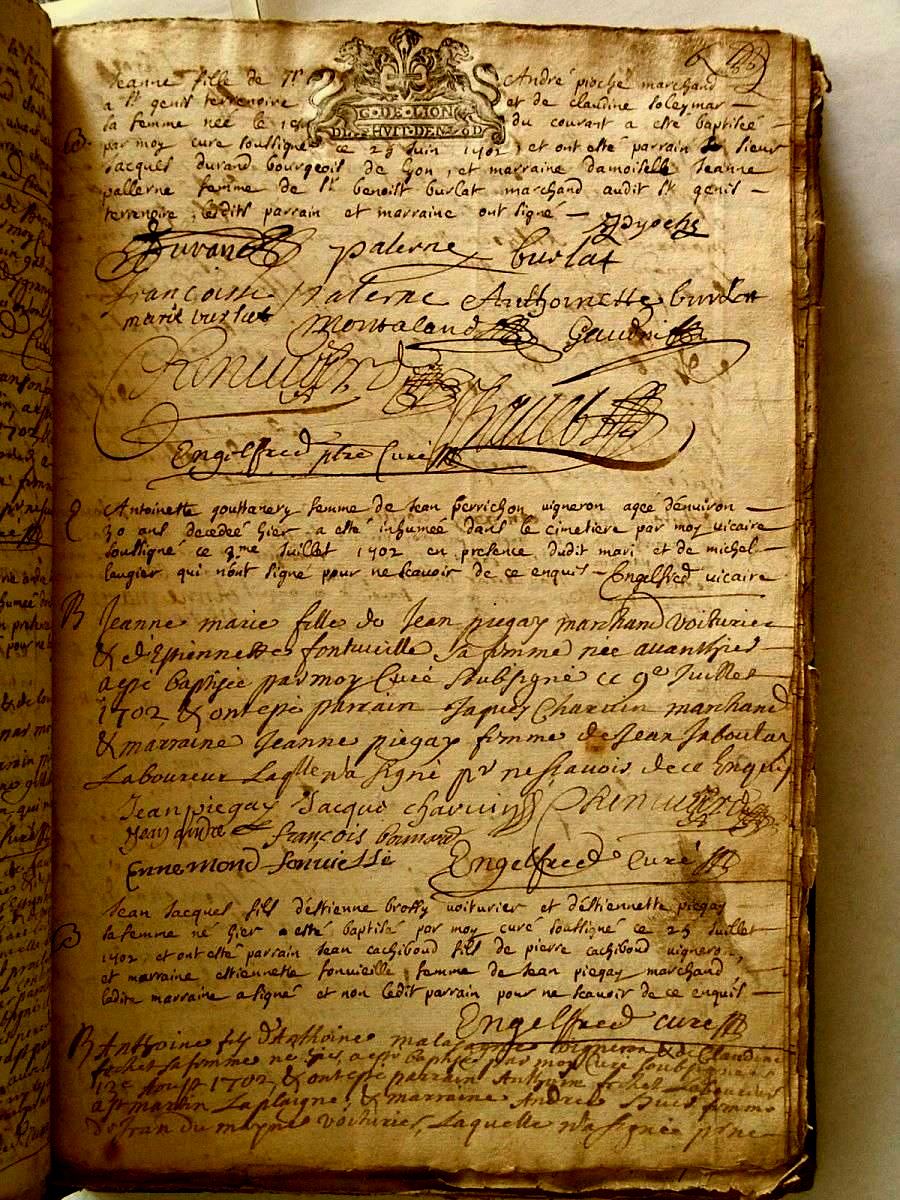 Jeanne fille de Sr André pioche marchand
a St genis terrenoire et de claudine soleymar
sa femme née le du courant a esté baptiseé
par moy curé soussigné ce 25 Juin 1702, et ont esté parrain Sieur
Jacques durand bourgeois de Lyon, et marraine damoiselle Jeanne
pallerne femme de Sr benoist burlat marchand audit St genis
terrenoire, lesdits parrain et marraine ont signé
G·DE·LION
HUIT·DEN
APyoche
Durand palerne burlat
francoise palerne Anthoinette burlat
marie burlat Montaland Gaudin
Engelfred ptre Curé
Antoinette gouttanery femme de Jean perrichon vigneron ageé d'environ
30 ans decedeé hier a esté inhumeé dans le cimetiere par moy vicaire
soussigné ce 3me Juillet 1702 en presence dudit mari et de michel
laugier qui n'ont signé pour ne scavoir de ce enquis Engelfred vicaire
B Jeanne marie fille de Jean piegay marchand voiturier
& d'Estiennette fontvieille sa femme née avanthier
a esté baptisée par moy Curé soubsigné ce 9e Juillet
1702 & ont esté parrain Jaques Charvin marchand
& marraine Jeanne piegay femme de Jean Jaboulay
Laboureur Laqlle n'a signé pr ne scavoir de ce Enquis
Jean piegay Jacque charvin
Jean andre françois bonnard
Ennemond fonvielle Engelfred Curé
Jean Jacques fils d'estienne brossy voiturier et d'estiennette piegay
B sa femme né hier a esté baptisé par moy curé soussigné ce 25 Juillet
1702, et ont esté parrain Jean cachiboud fils de pierre cachiboud vigneron,
et marraine estiennette fonvieille femme de Jean piegay marchand
ladite marraine a signé et non ledit parrain pour ne scavoir de ce enquis
Engelfred curé
B Anthoine fils d'Anthoine vigneron & de Claudine
fochet sa femme né a esté baptisé par moy Curé soubsigné
12e Aoust 1702 & ont esté parrain Anthoine fochet Laboureur
a St martin Laplaigne, & marraine Andree femme
de Jean du moyne voiturier, Laquelle n'a signée pr ne